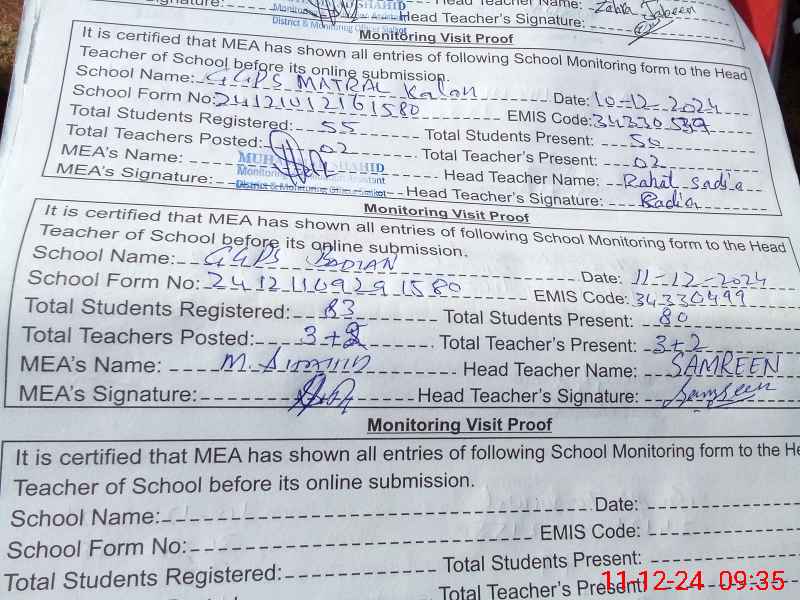 Head Teacher Name: Zahra Jabeen
Signature: SHAHID Head Teacher's Signature:
District & Monitoring
Monitoring Visit Proof
It is certified that MEA has shown all entries of following School Monitoring form to the Head
Teacher of School before its online submission.
School Name: GGPS MATRAL Kalan Date: 10-12-2024
School Form No: 24121012161580 EMIS Code: 34330539
Total Students Registered: 55 Total Students Present: 50
Total Teachers Posted: 02 Total Teacher's Present: 02
MEA's Name: SHAHID Head Teacher Name: Rahat Sadia
Monitoring Assistant
MEA's Signature: District & Monitoring Office Sialkot Head Teacher's Signature: Sadia
Monitoring Visit Proof
It is certified that MEA has shown all entries of following School Monitoring form to the Head
Teacher of School before its online submission.
School Name: GGPS BODIAN Date: 11-12-2024
School Form No: 24121109291580 EMIS Code: 34330499
Total Students Registered: 83 Total Students Present: 80
Total Teachers Posted: 3+2 Total Teacher's Present: 3+2
MEA's Name: M. Head Teacher Name: SAMREEN
MEA's Signature: Head Teacher's Signature: Samreen
Monitoring Visit Proof
It is certified that MEA has shown all entries of following School Monitoring form to the He
Teacher of School before its online submission.
School Name: Date:
School Form No: EMIS Code:
Total Students Registered: Total Students Present:
Total Teacher's Present:
11-12-24 09:35